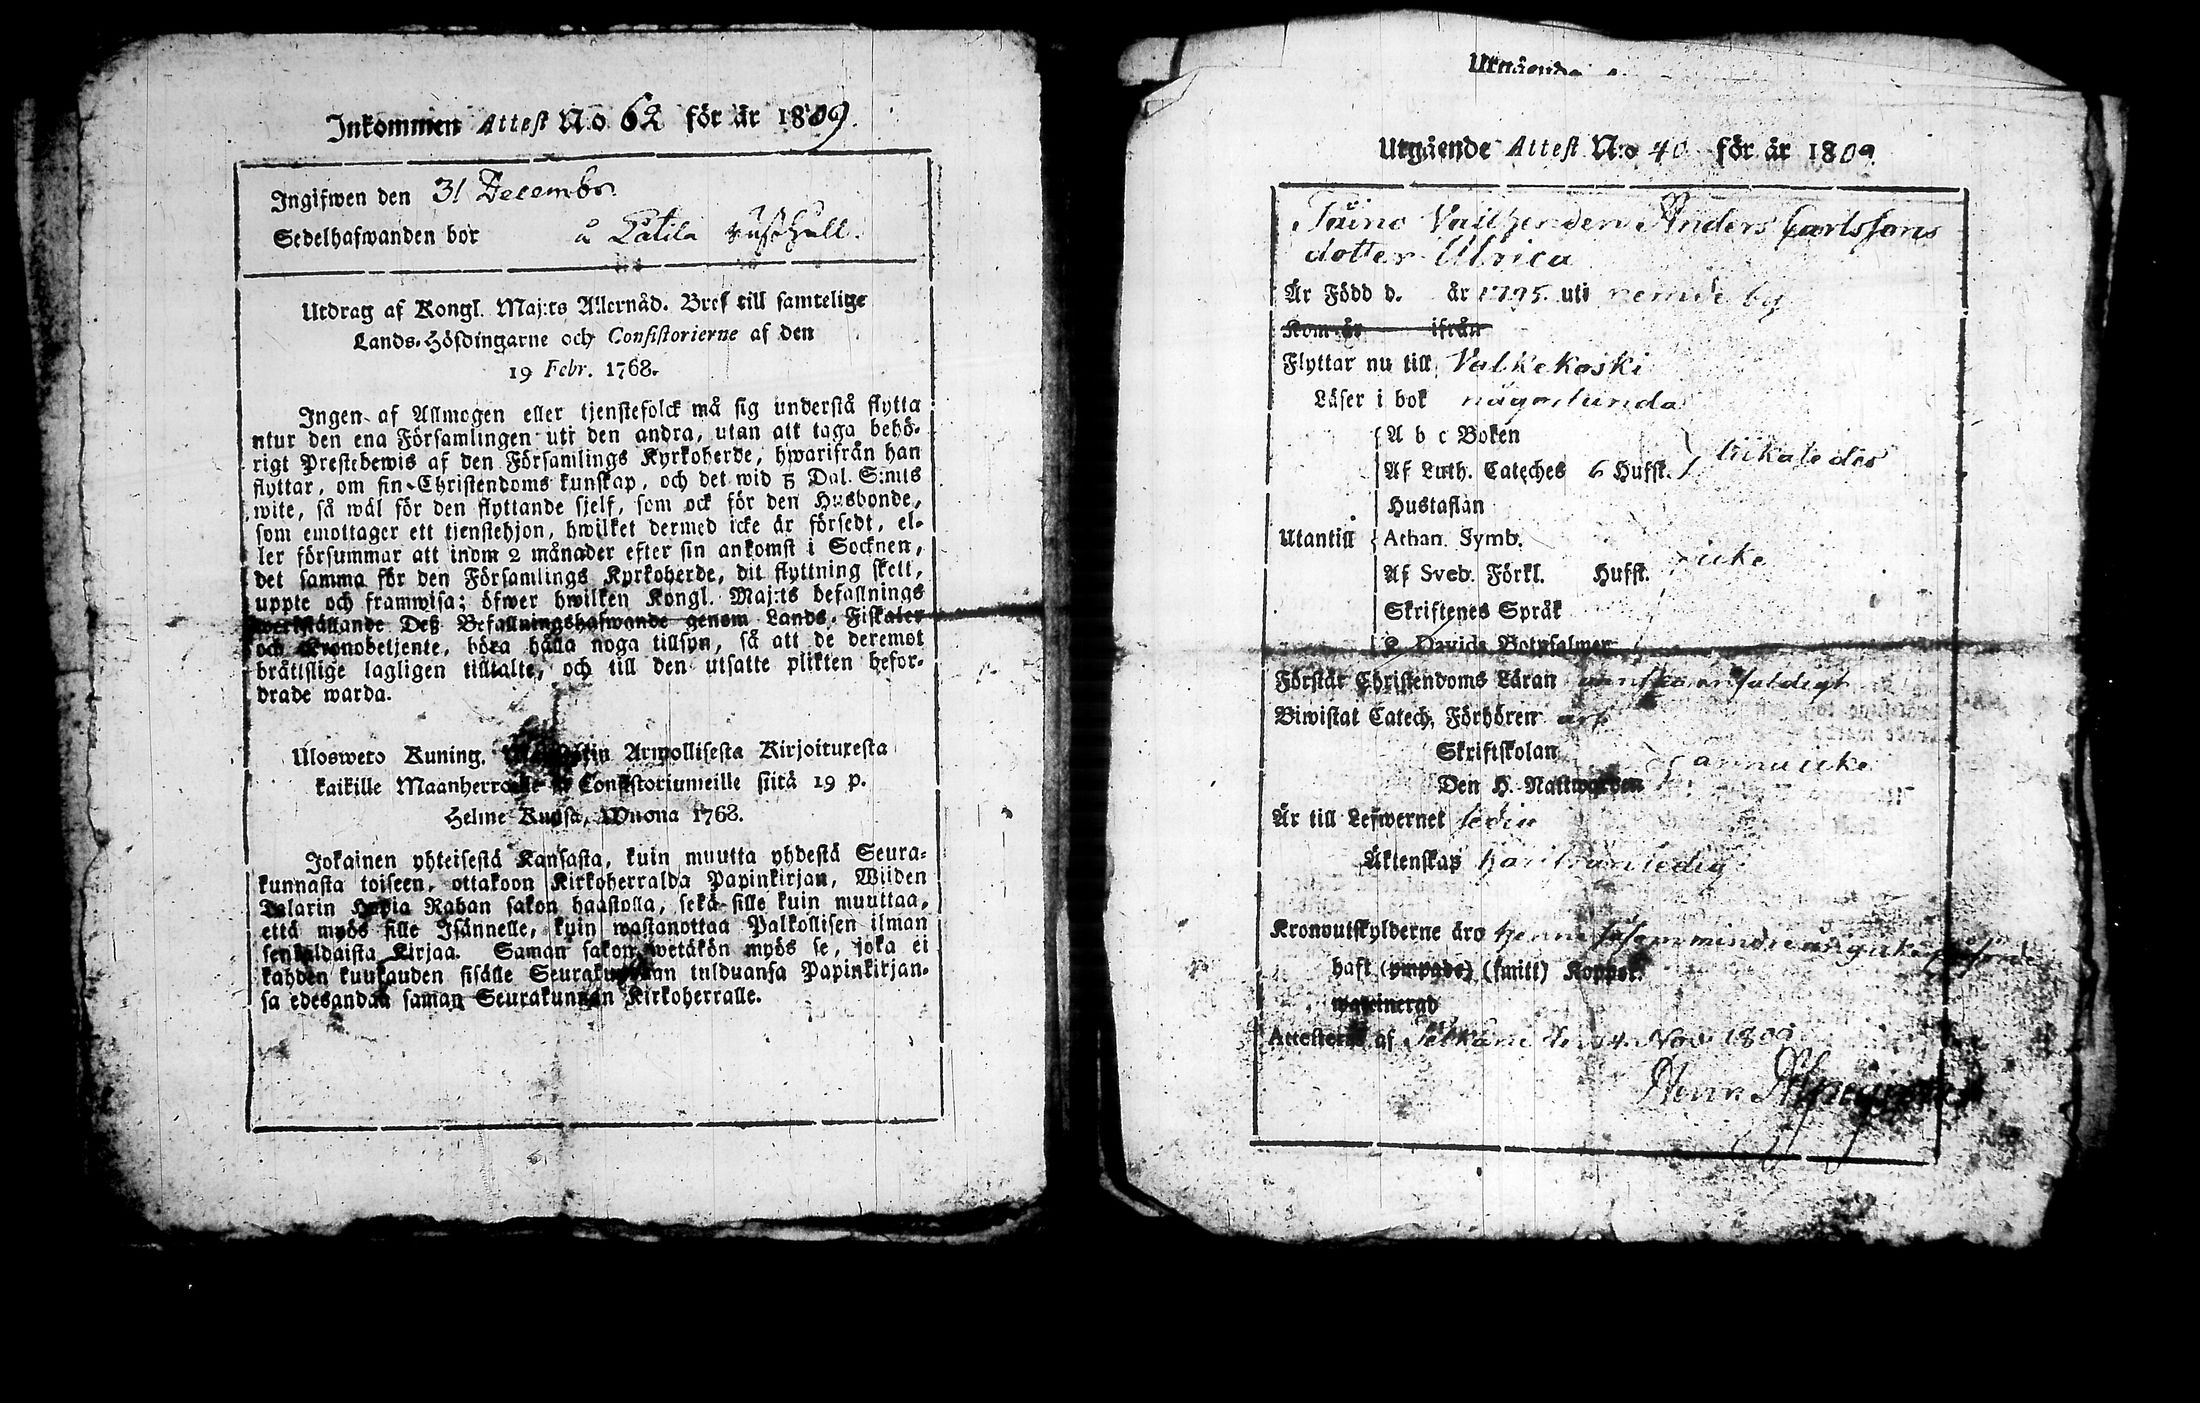 Inkommen Attest No 62 för år 1809.
Ingifwen den 31 Decembr
Sedelhafwanden bor å Latila rusthåll.
Utdrag af Kongl. Maj:ts Allernåd. Bref till samtelige
Lands-Höfdingarne och Consistorierne af den
19 Febr. 1768.
Ingen af Allmogen eller tjenstefolck må sig understå flytta
utur den ena Församlingen uti den andra, utan att taga behö-
rigt Prestebewis af den Församlings Kyrkoherde, hwarifrån han
flyttar, om sin Christendoms kunskap, och det wid 5 Dal. S:mts
wite, så wäl för den flyttande sjelf, som ock för den Husbonde,
som emottager ett tjenstehjon, hwilket dermed icke är försedt, el-
ler försummar att inom 2 månader efter sin ankomst i Socknen,
det samma för den Församlings Kyrkoherde, dit flyttning skett,
uppte och framwisa; öfwer hwilken Kongl. Maj:ts befallnings
werkställande Deß Befallningshafwande genom Lands-Fiskaler
och Kronobetjente, böra hålla noga tillsyn, så att de deremot
bråttslige lagligen tilltalte, och till den utsatte plikten befor-
drade warda.
Ulosweto Kuning. Armollisesta Kirjoituxesta
kaikille Maanherroille ja Consistoriumeille siitä 19 p.
Helme Kuusa, Wuona 1768.
Jokainen yhteisestä Kansasta, kuin muutta yhdestä Seura-
kunnasta toiseen, ottakoon Kirkoherralda Papinkirjan, Wiiden
Talarin Hopia Rahan sakon haastolla, sekä sille kuin muuttaa,
että myös sille Isännelle, kuin wastanottaa Palkollisen ilman
senkaldaista Kirjaa. Saman sakon wetäkön myös se, joka ei
kahden kuukauden sisälle Seurakunnan tulduansa Papinkirjan-
sa edesandaa saman Seurakunnan Kirkoherralle.
Utgående
Utgående Attest N:o 40 för år 1809
Anders Carlssons
dotter Ulrica
Är Född d. år 1795 uti by
Kom år ifrån
Flyttar nu till Valkekoski
Läser i bok någorlunda
A b c Boken
Af Luth. Cateches 6 Hufst. likaledes
Hustaflan
Utantill Athan. Symb.
Af Sveb. Förkl. Hufst. icke
Skriftenes Språk
D. Davids Botpsalmer
Förstår Christendoms Läran
Biwistat Catech. Förhören
Skriftskolan
Den H. Nattwarden ännu icke
Är till Lefwernet
Äktenskap härifrån ledig
Kronoutskylderne äro
haft (ympade) (smitt) Koppor.
waccinerad
Attesteras af den 14 Nov. 1809
Henr.